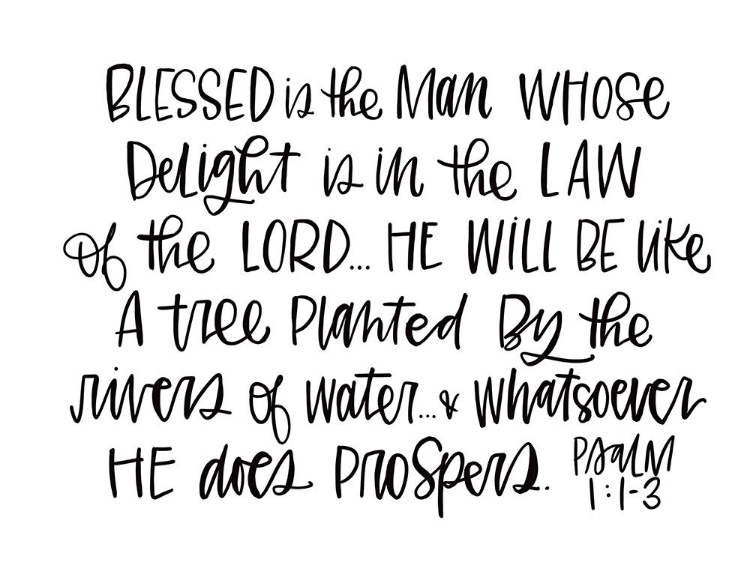 BLESSED is the Man WHOSe
DeLight is in the LAW
of the LORD... HE WiLL BE like
A tree Planted By the
rivers of water...& whatsoever
HE does Prospers.
PSALM
1:1-3